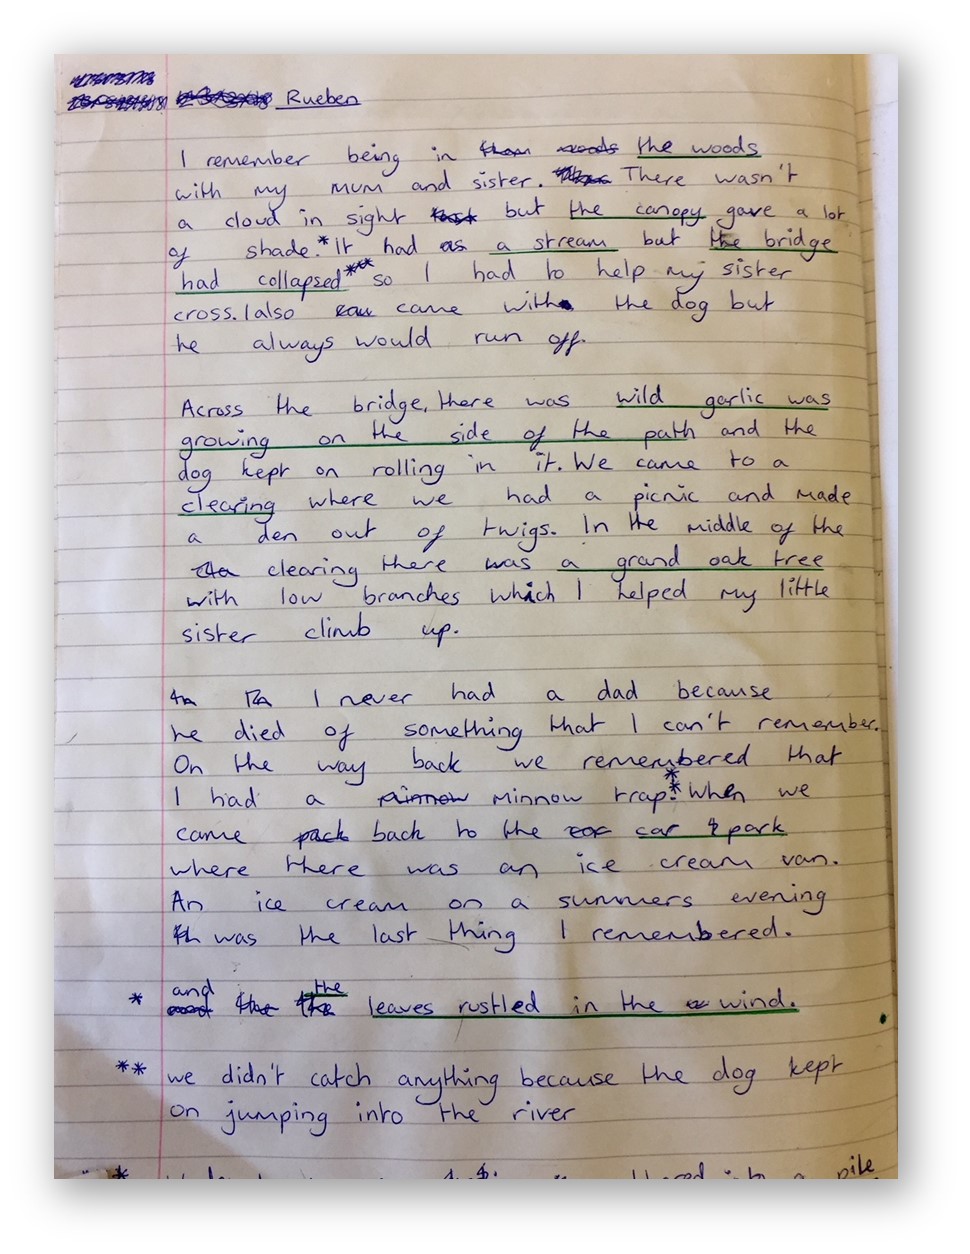 Rueben
I remember being in the woods
with my mum and sister. There wasn't
a cloud in sight but the canopy gave a lot
of shade.* It had as a stream but the bridge
had collapsed** so I had to help my sister
cross. I also came with the dog but
he always would run off.
Across the bridge, there was wild garlic was
growing on the side of the path and the
dog kept on rolling in it. We came to a
clearing where we had a picnic and made
a den out of twigs. In the middle of the
clearing there was a grand oak tree
with low branches which I helped my little
sister climb up.
I never had a dad because
he died of something that I can't remember.
On the way back we remembered that
I had a minnow trap.** When we
came back to the car park
where there was an ice cream van.
An ice cream on a summers evening
was the last thing I remembered.
* and the leaves rustled in the wind.
** we didn't catch anything because the dog kept
on jumping into the river
* into a pile